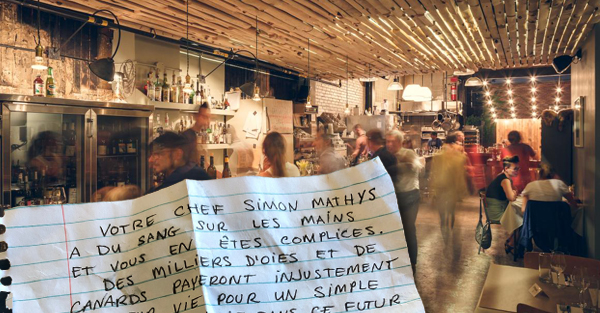 VOTRE CHEF SIMON MATHYS
A DU SANG SUR LES MAINS
ET VOUS EN ÊTES COMPLICES.
DES MILLIERS D'OIES ET DE
CANARDS PAYERONT INJUSTEMENT
VIE POUR UN SIMPLE
CE FUTUR